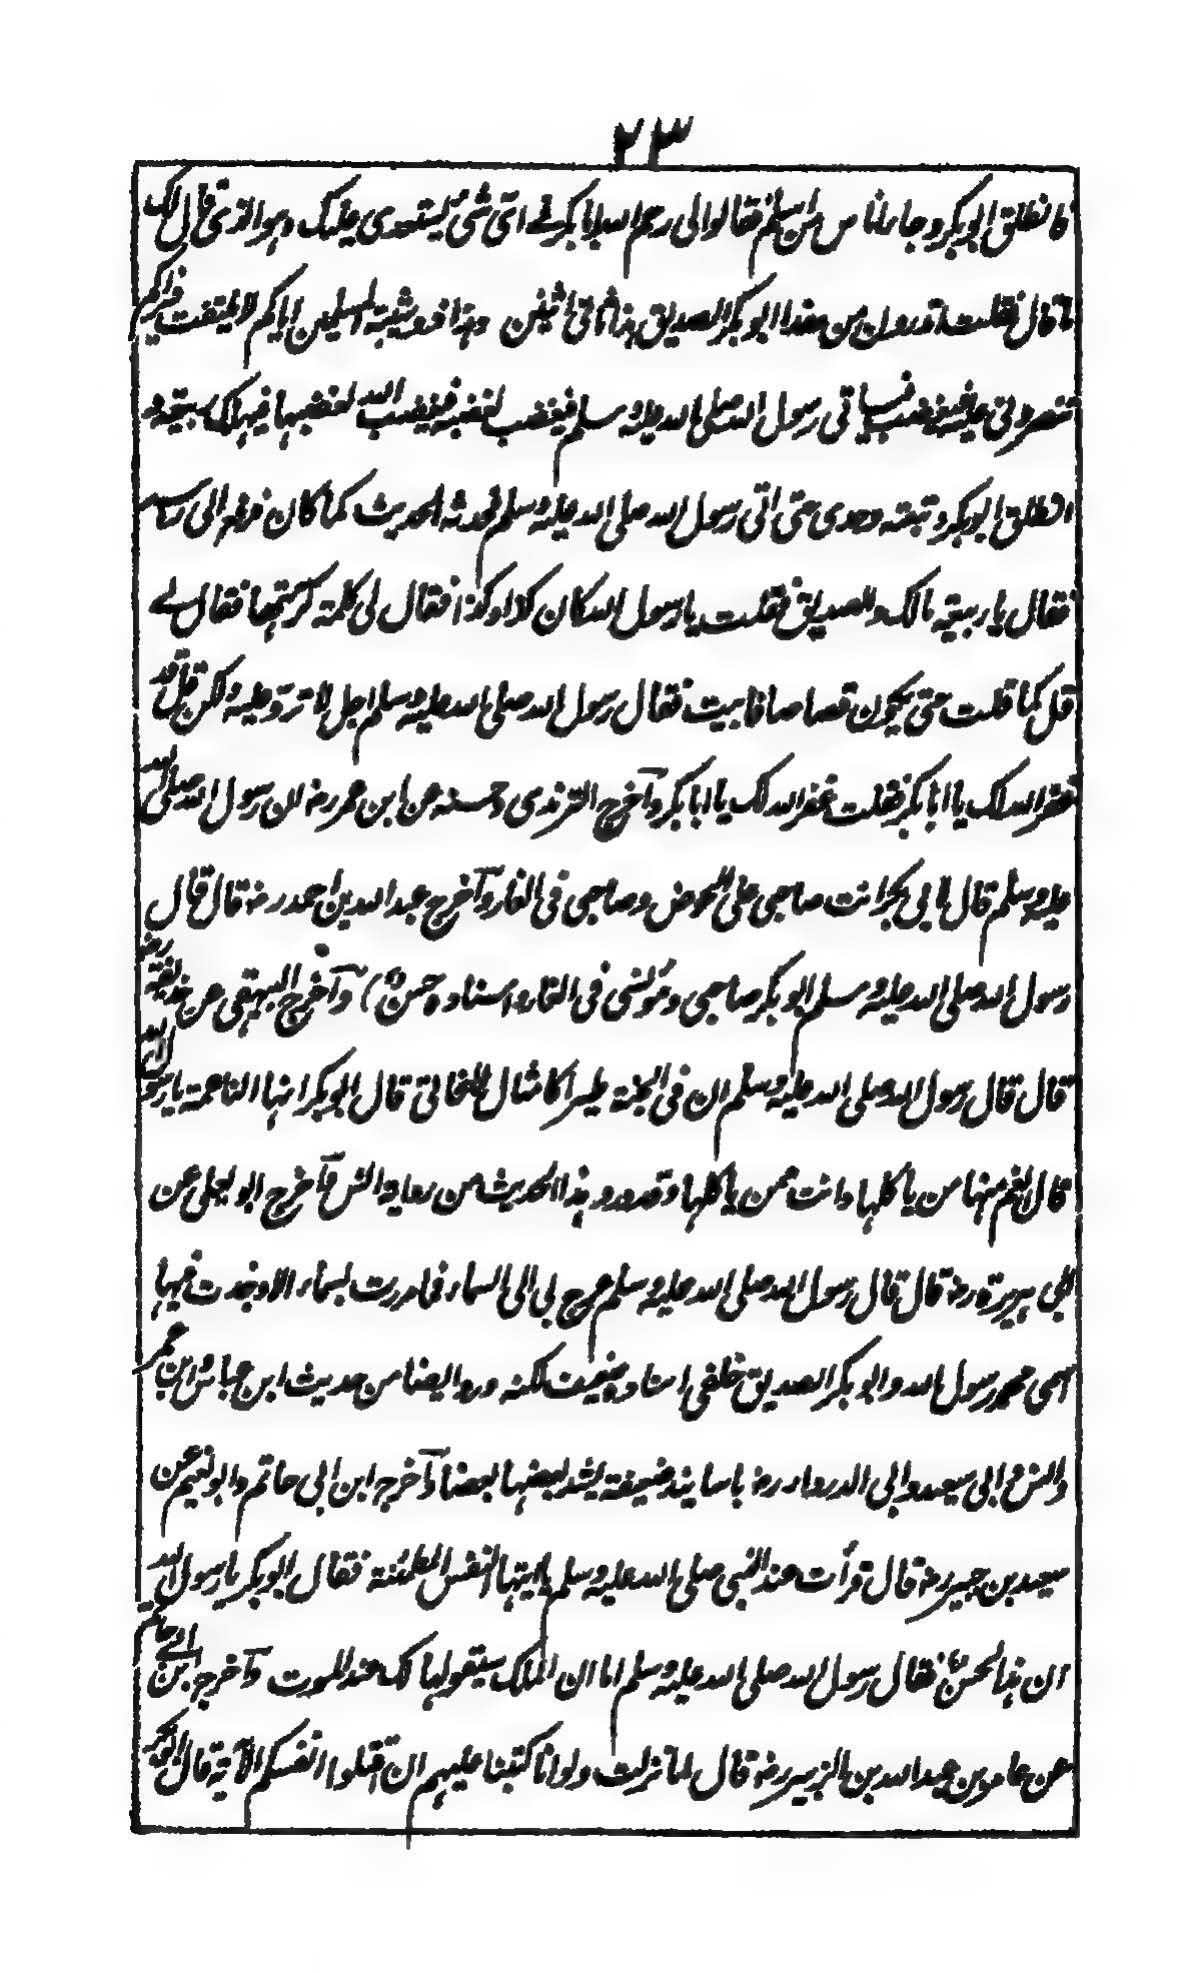 ٢٣
فانطلق ابو بكر وجاء اناس من اسلم فقالوا لى رحم الله ابا بكر فے اى شئ يستعدى عليك وهو الذى قال لك
ما قال فقلت اتدرون من هذا ابو بكر الصديق هذا ثانى اثنين وهذا ذو شيبة المسلمين اياكم لا يلتفت فيراكم
تنصرونى عليه فيغضب فياتى رسول الله صلى الله عليه وسلم فيغضب لغضبه فيغضب الله لغضبهما فيهلك ربيعة و
انطلق ابو بكر وتبعته وحدى حتى اتى رسول الله صلى الله عليه وسلم فحدثه الحديث كما كان فرفع الى راسه
فقال يا ربيعة مالك وللصديق فقلت يا رسول الله كان كذا وكذا فقال لى كلمة كرهتها فقال لے
قل كما قلت حتى يكون قصاصا فابيت فقال رسول الله صلى الله عليه وسلم اجل لا ترد عليه ولكن قل قد
غفر الله لك يا ابا بكر فقلت غفر الله لك يا ابا بكر وآخرج الترمذى وحسنه عن ابن عمر رضه ان رسول الله صلى الله
عليه وسلم قال لابى بكر انت صاحبى على الحوض وصاحبى فى الغار وآخرج عبد الله بن احمد رضه قال قال
رسول الله صلى الله عليه وسلم ابو بكر صاحبى ومؤنسى فى الغار (اسناده حسن) وآخرج البيهقى عن حذيفة رضه
قال قال رسول الله صلى الله عليه وسلم ان فى الجنة طيرا كامثال البخاتى قال ابو بكر انها لناعمة يا رسول الله
قال انعم منها من ياكلها وانت ممن ياكلها وقد ورد هذا الحديث من رواية انس وآخرج ابو يعلى عن
ابى هريرة رضه قال قال رسول الله صلى الله عليه وسلم عرج بى الى السماء فما مررت بسماء الا وجدت فيها
اسمى محمد رسول الله وابو بكر الصديق خلفى اسناده ضعيف لكنه ورد ايضا من حديث ابن عباس وابن عمر
وانس وابى سعيد وابى الدرداء رضه باسانيد ضعيفة يشد بعضها بعضا وآخرج ابن ابى حاتم وابو نعيم عن
سعيد بن جبير رضه قال قرأت عند النبى صلى الله عليه وسلم يا ايتها النفس المطمئنة فقال ابو بكر يا رسول الله
ان هذا لحسن فقال رسول الله صلى الله عليه وسلم اما ان الملك سيقولها لك عند الموت وآخرج ابن ابے حاتم
عن عامر بن عبد الله بن الزبير رضه قال لما نزلت ولو انا كتبنا عليهم ان اقتلوا انفسكم الآية قال ابو بكر